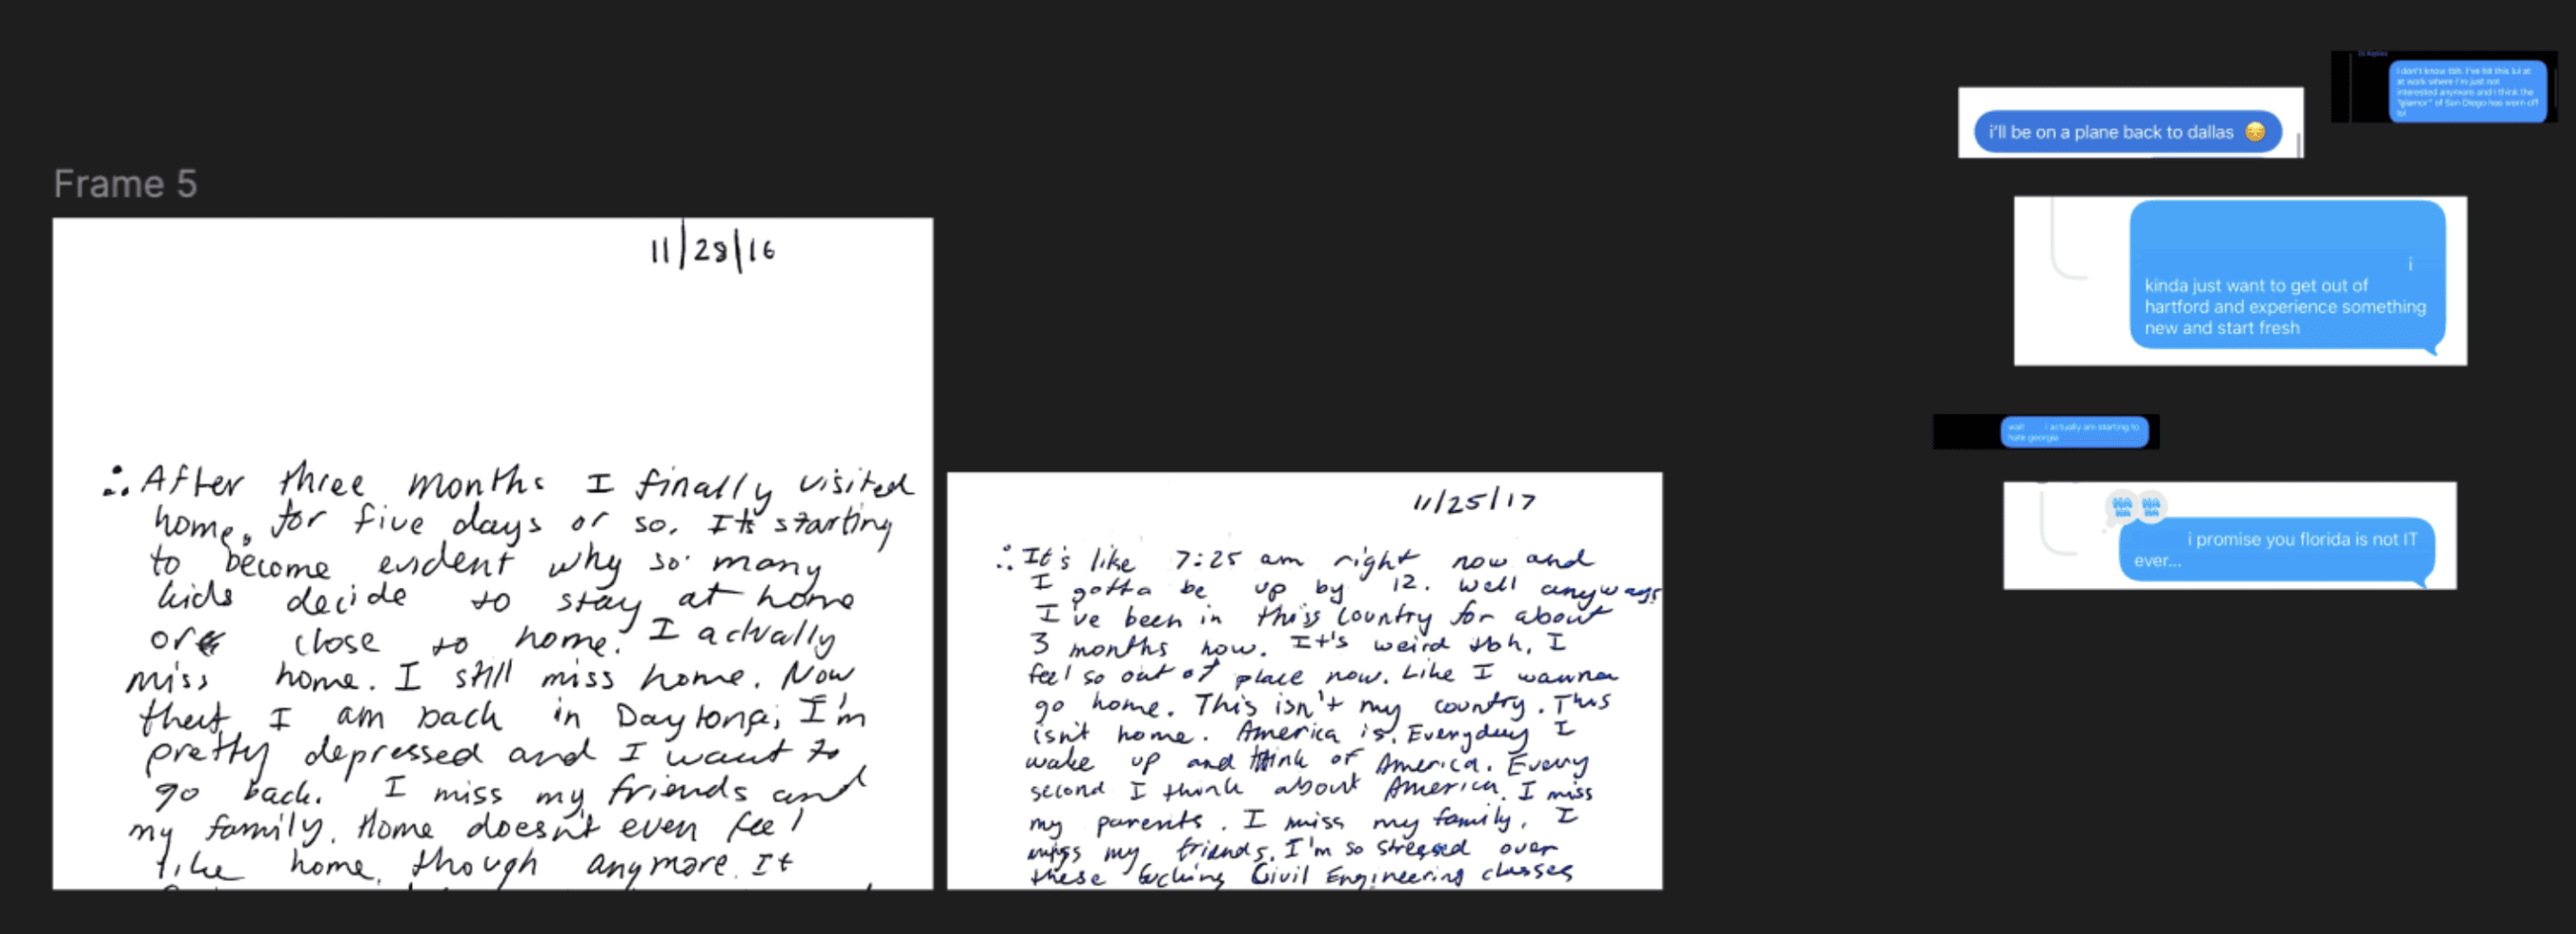 Frame 5
11/28/16
∴ After three months I finally visited
home, for five days or so. It's starting
to become evident why so many
kids decide to stay at home
or close to home. I actually
miss home. I still miss home. Now
that I am back in Daytona, I'm
pretty depressed and I want to
go back. I miss my friends and
my family. Home doesn't even feel
like home, though anymore. It
11/25/17
∴ It's like 7:25 am right now and
I gotta be up by 12. Well anyways
I've been in this country for about
3 months now. It's weird tbh, I
feel so out of place now. Like I wanna
go home. This isn't my country. This
isn't home. America is. Everyday I
wake up and think of America. Every
second I think about America. I miss
my parents. I miss my family. I
miss my friends. I'm so stressed over
these fucking Civil Engineering classes
i'll be on a plane back to dallas
i don't know tbh. I've hit this lul at
at work where i'm just not
interested anymore and i think the
"glamor" of San Diego has worn off
lol
i
kinda just want to get out of
hartford and experience something
new and start fresh
wait i actually am starting to
hate georgia
HA HA
HA HA
i promise you florida is not IT
ever...